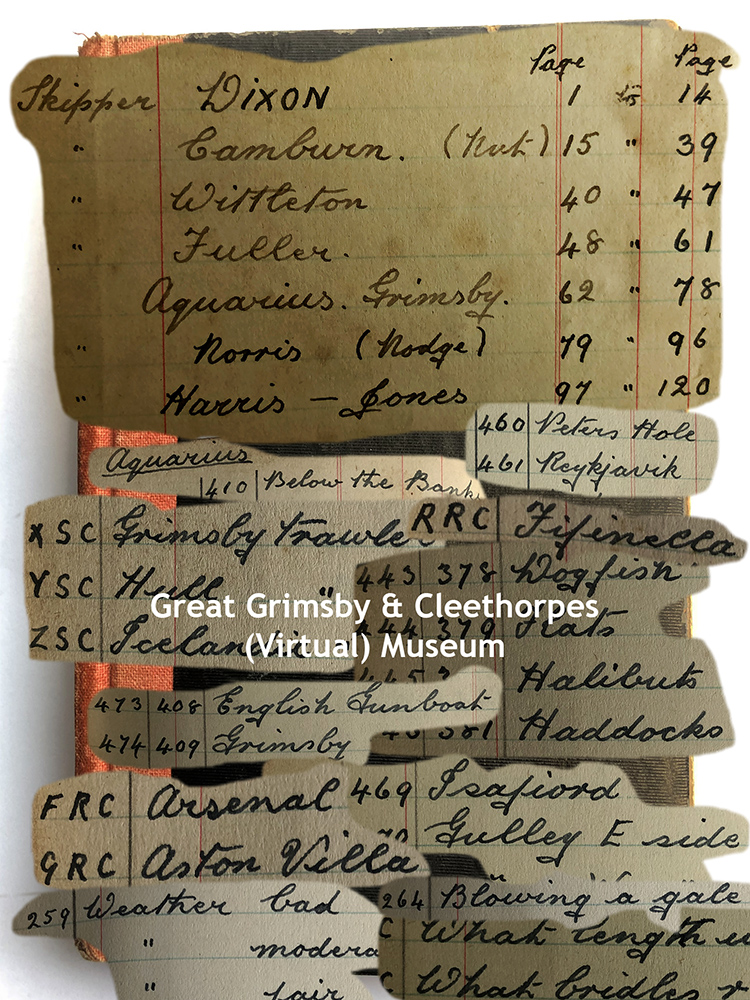 Page Page
Skipper DIXON 1 to 14
" Camburn. (Nut) 15 " 39
" Wittleton 40 " 47
" Fuller. 48 " 61
Aquarius. Grimsby. 62 " 78
" Norris (Nodge) 79 " 96
" Harris - Jones 97 " 120
460 Peters Hole
461 Reykjavik
Aquarius
410 Below the Bank
RRC Fifinella
XSC Grimsby trawler
YSC Hull "
ZSC Icelandic
443 378 Dogfish
444 379 
Halibuts
381 Haddocks
Great Grimsby & Cleethorpes
(Virtual) Museum
473 408 English Gunboat
474 409 Grimsby
FRC Arsenal
GRC Aston Villa
469 Isafiord
Gulley E side
259 Weather bad
" modera
" fair
264 Blowing a gale
C What length
C What bridles